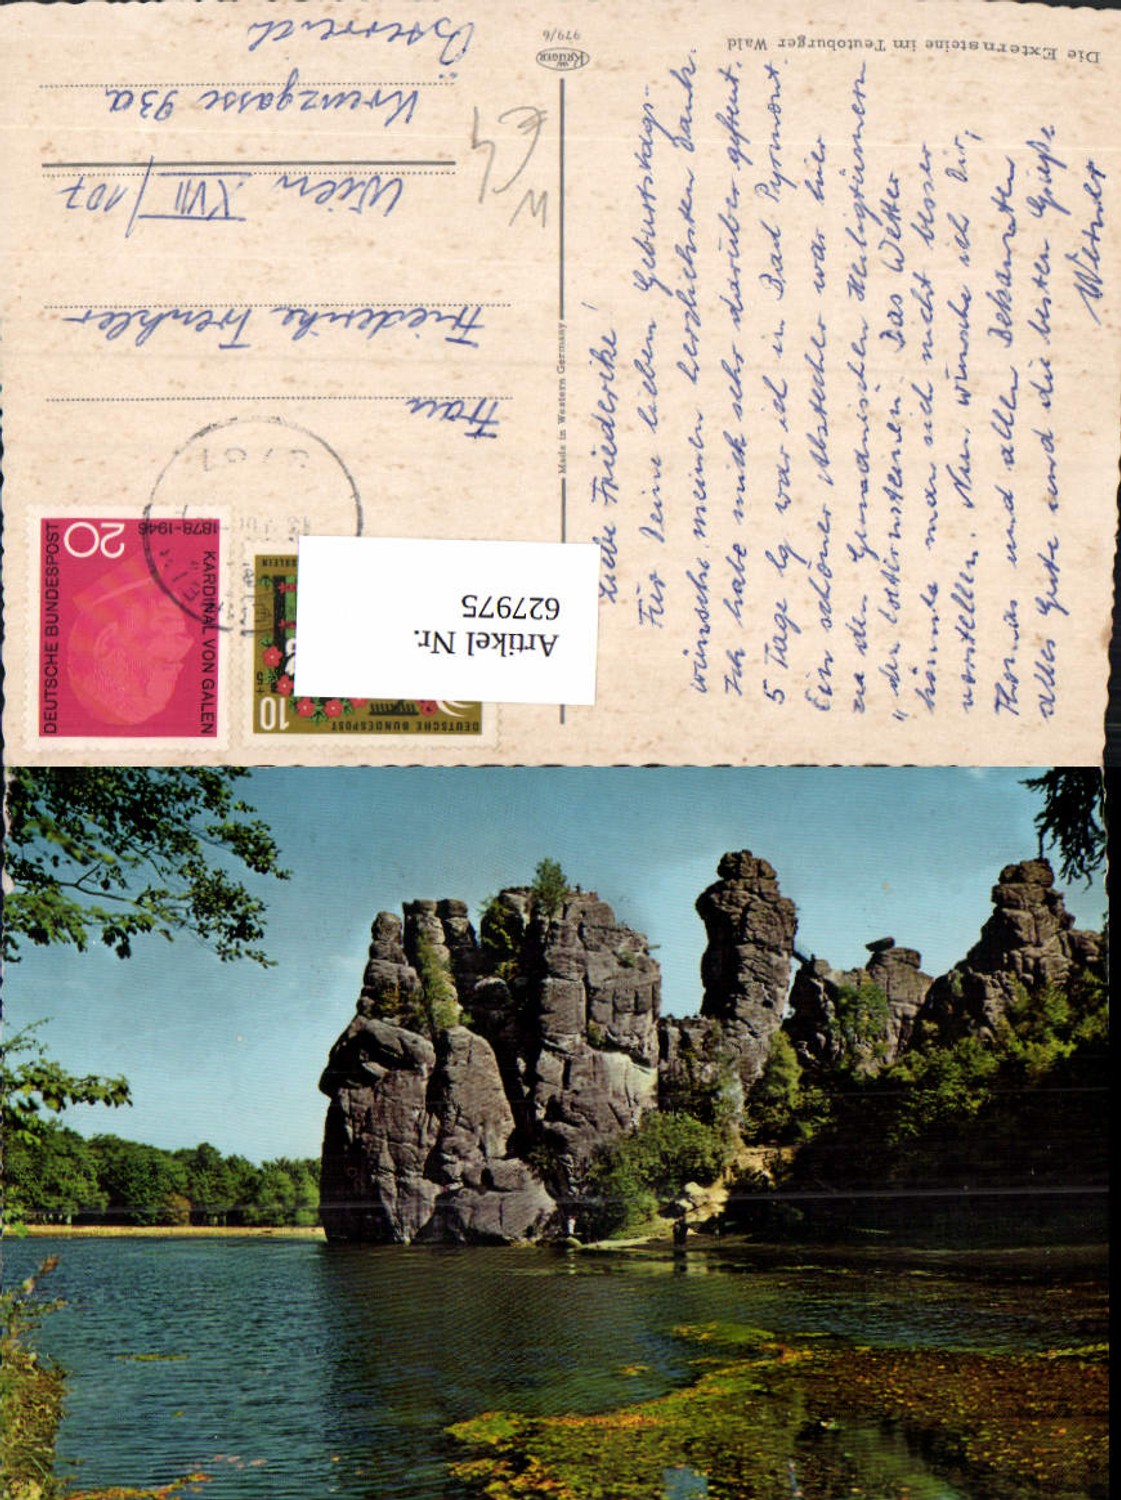 Die Externsteine im Teutoburger Wald
KRÜGER
979/6
Made in Western Germany
Liebe Friederike!
Für Deine lieben Geburtstags-
wünsche meinen herzlichsten Dank.
Ich habe mich sehr darüber gefreut.
5 Tage lg war ich in Bad Pyrmont.
Ein schöner Abstecher war hier
zu den Germanischen Heiligtümern
"den Externsteinen. Das Wetter
könnte man sich nicht besser
vorstellen. Nun wünsche ich Dir,
Thomas und allen Bekannten
alles Gute und die besten Grüße
W €4
DEUTSCHE BUNDESPOST
20
KARDINAL VON GALEN
1878-1946
10
+5
DEUTSCHE BUNDESPOST
Artikel Nr.
627975
Frau
Friederike Trenkler
Wien XVII/107
Kreuzgasse 93a
Österreich